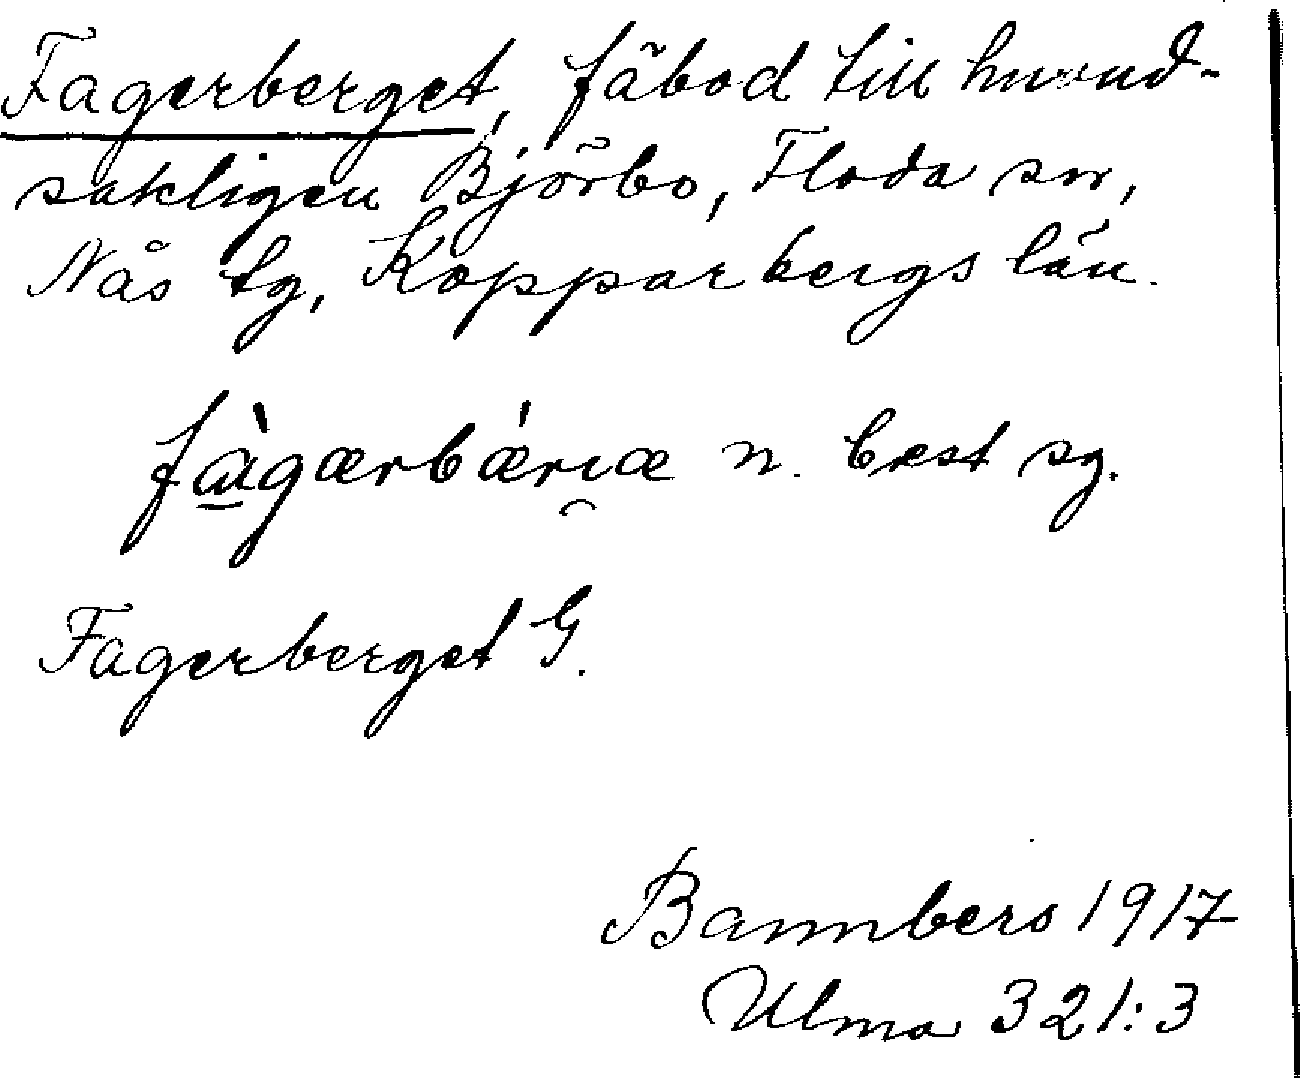 Fagerberget, fäbod till huvud-
sakligen Björbo, Floda sn,
Nås tg, Kopparbergs län.
fàgærbǽrıæ n. best sg.
Fagerberget G.
Bannbers 1917
Ulma 321:3